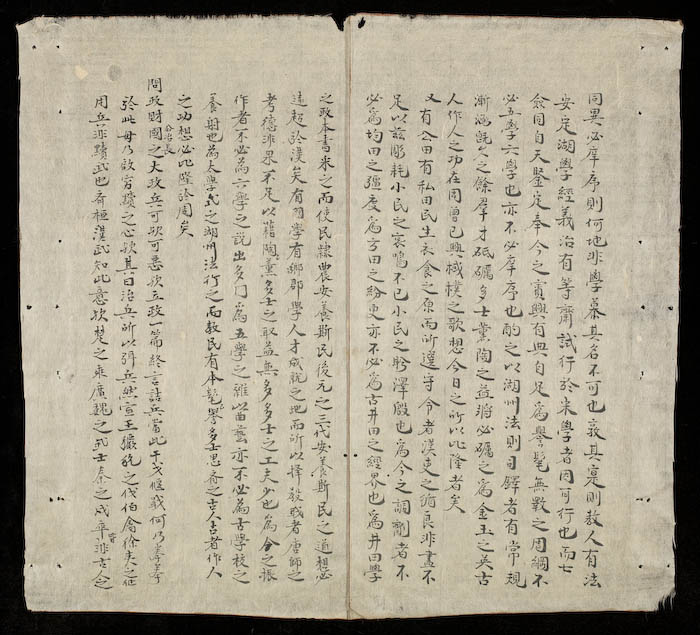 同異必庠序則何地非學慕其名不可也敦其寔則教人有法
安定湖學經義治有等齋試行於米學者因可行也而士
僉同自天鑒定奉今之賓興有與自足為譽髦無斁之周綱不
必五學六學也亦不必庠序也酌之以湖州法則司鐸者有常規
漸漪既久之餘羣才砥礪多士薰陶之益將必礪之為金玉之英古
人作人之功在周曾已興棫樸之歌想今日之所以比隆者矣
又有公田有私田民生衣食之原而所選守令者漢吏之循良非盡不
足以茲彫耗小民之哀鳴不已小民之盻澤殷也為今之調劑者不
必為均田之彊度為方田之紛更亦不必為古井田之經界也為井田學
之政本書米之而使民隸農安養斯民後元之三代安養斯民之道想必
遠超於漢矣有國學有鄉郡學人才成就之地而所以擇發職者唐師之
考德非果不足以藉陶薰多士之取益無多多士之工夫少也為今之振
作者不必為六學之說出多門為五學之雜以曲藝亦不必為古學校之
養射也為太學式之湖州法行之而教民有本髦譽多士思齊之古人古者作人
之功想必比隆於周矣
問政財國之大政兵可欤可忽欤立政一篇終言詰兵當此干戈倐戢何乃
於此毋乃啟窮黷之心欤其曰治兵所以弭兵然宣王玁狁之伐伯禽徐夷之征
用兵非黷武也齊桓漢武知此意欤楚之乘廣魏之武士秦之戍卒非古人之